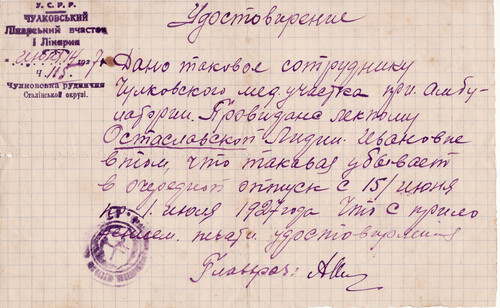 У. С. Р. Р.
ЧУЛКОВСЬКИЙ
Лікарський Участок
і Лікарня
14 192 7
Ч. 165.
Чулковська рудничн
Сталінської округи.
Удостоверение
Дано таковое сотруднику
Чулковского медучастка при Амбу-
латории. Провизане лекпому
Остаславской Лидии Ивановне
в том, что таковая убывает
в очередной отпуск с 15/ июня
1. июля 1927 года что с прило
жением печати удостоверяется
Главврач: